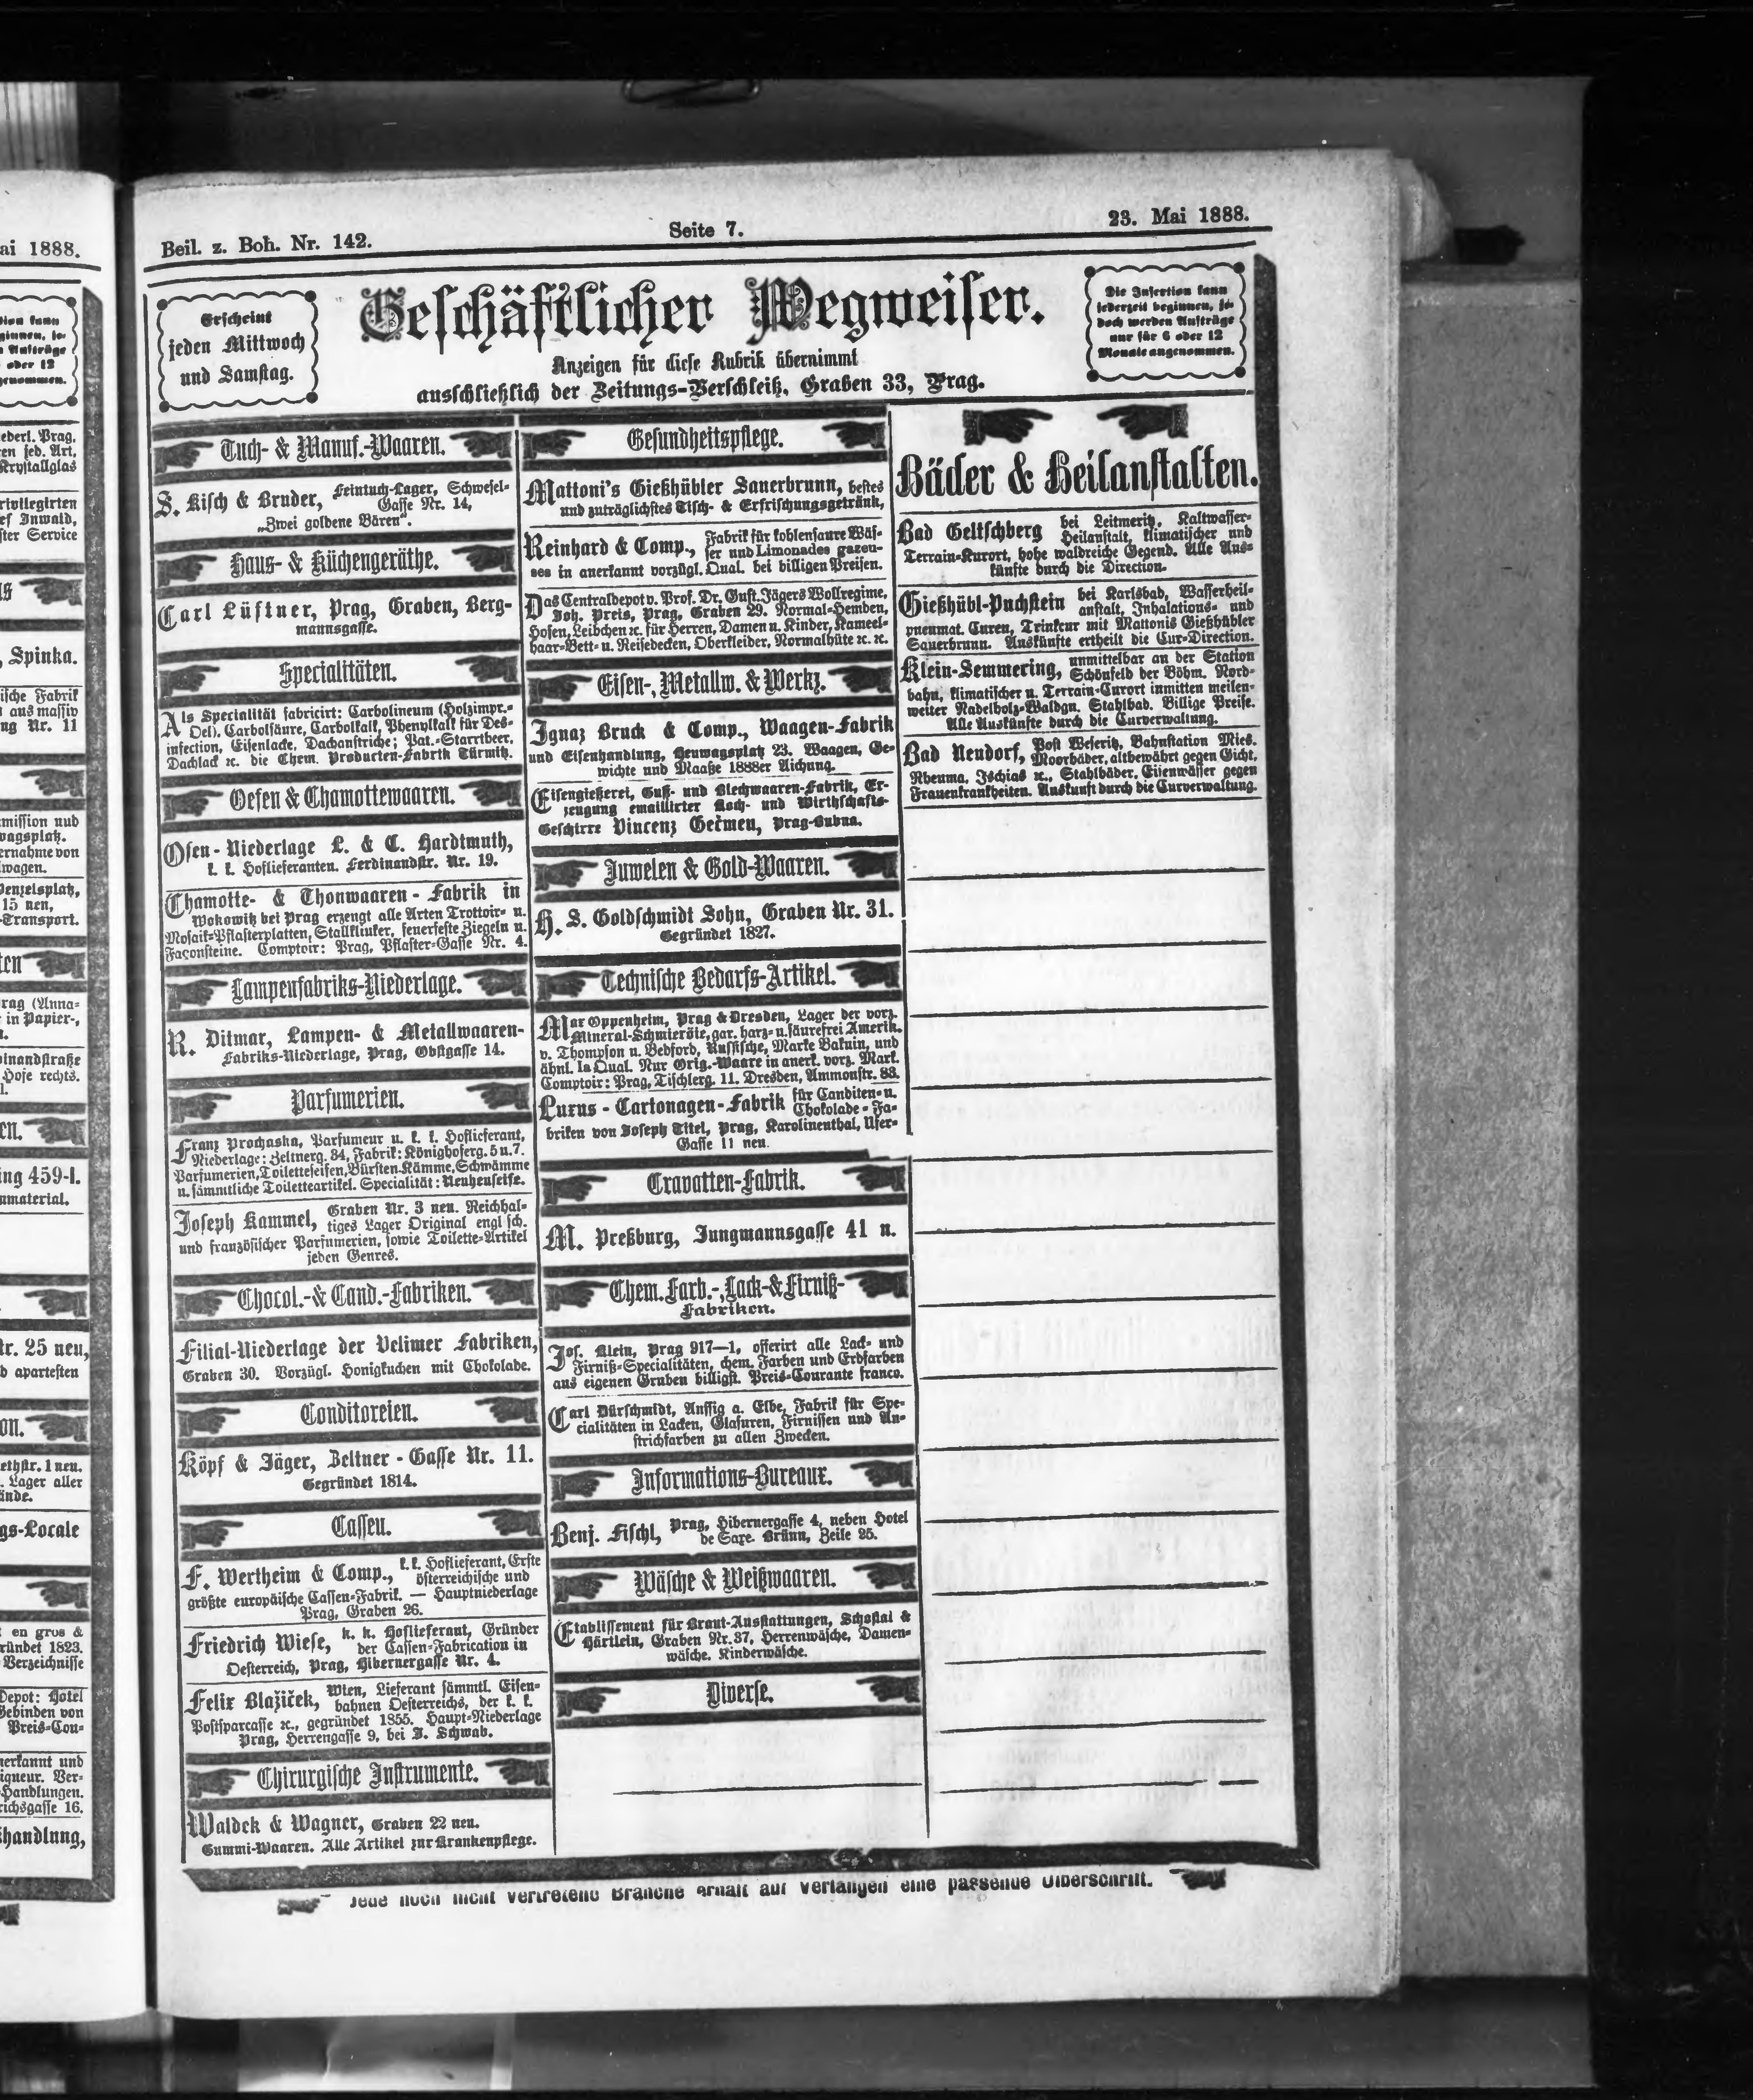 Beil. z. Boh. Nr. 142.
Seite 7.
23. Mai 1888.
Erscheint
jeden Mittwoch
und Samstag.
Geschäftlicher Wegweiser.
Anzeigen für diese Rubrik übernimmt
ausschließlich der Zeitungs-Verschleiß, Graben 33, Prag.
Die Insertion kann
jederzeit beginnen, je-
doch werden Aufträge
nur für 6 oder 12
Monate angenommen.
Tuch- & Manuf.-Waaren.
S. Kisch & Bruder, Feintuch-Lager, Schwefel-
Gasse Nr. 14,
„Zwei goldene Bären".
Haus- & Küchengeräthe.
Carl Lüftner, Prag, Graben, Berg-
mannsgasse.
Specialitäten.
Als Specialität fabricirt: Carbolineum (Holzimpr.-
Oel). Carbolsäure, Carbolkalk, Phenylkalk für Des-
infection, Eisenlacke, Dachanstriche; Pat.-Starrtheer,
Dachlack ꝛc. die Chem. Producten-Fabrik Türmitz.
Oefen & Chamottewaaren.
Ofen-Niederlage L. & C. Hardtmuth,
k. k. Hoflieferanten. Ferdinandstr. Nr. 19.
Chamotte- & Thonwaaren-Fabrik in
Wokowitz bei Prag erzeugt alle Arten Trottoir- u.
Mosaik-Pflasterplatten, Stallklinker, feuerfeste Ziegeln u.
Façonsteine. Comptoir: Prag, Pflaster-Gasse Nr. 4.
Lampenfabriks-Niederlage.
R. Ditmar, Lampen- & Metallwaaren-
Fabriks-Niederlage, Prag, Obstgasse 14.
Parfumerien.
Franz Prochaska, Parfumeur u. k. k. Hoflieferant,
Niederlage: Zeltnerg. 34, Fabrik: Königshoferg. 5 u. 7.
Parfumerien, Toiletteseifen, Bürsten-Kämme, Schwämme
u. sämmtliche Toiletteartikel. Specialität: Neuheuseife.
Joseph Kammel, Graben Nr. 3 neu. Reichhal-
tiges Lager Original englisch.
und französischer Parfumerien, sowie Toilette-Artikel
jeden Genres.
Chocol.- & Cand.-Fabriken.
Filial-Niederlage der Velimer Fabriken,
Graben 30. Vorzügl. Honigkuchen mit Chokolade.
Conditoreien.
Köpf & Jäger, Zeltner-Gasse Nr. 11.
Gegründet 1814.
Cassen.
F. Wertheim & Comp., k. k. Hoflieferant, Erste
österreichische und
größte europäische Cassen-Fabrik. — Hauptniederlage
Prag, Graben 26.
Friedrich Wiese, k. k. Hoflieferant, Gründer
der Cassen-Fabrication in
Oesterreich, Prag, Hibernergasse Nr. 4.
Felix Blažiček, Wien, Lieferant sämmtl. Eisen-
bahnen Oesterreichs, der k. k.
Postsparcasse ꝛc., gegründet 1855. Haupt-Niederlage
Prag, Herrengasse 9, bei J. Schwab.
Chirurgische Instrumente.
Waldek & Wagner, Graben 22 neu.
Gummi-Waaren. Alle Artikel zur Krankenpflege.
Gesundheitspflege.
Mattoni's Gießhübler Sauerbrunn, bestes
und zuträglichstes Tisch- & Erfrischungsgetränk,
Reinhard & Comp., Fabrik für kohlensaure Wäs-
ser und Limonades gazeu-
ses in anerkannt vorzügl. Qual. bei billigen Preisen.
Das Centraldepot v. Prof. Dr. Gust. Jägers Wollregime,
Joh. Preis, Prag, Graben 29. Normal-Hemden,
Hosen, Leibchen ꝛc. für Herren, Damen u. Kinder, Kameel-
haar-Bett- u. Reisedecken, Oberkleider, Normalhüte ꝛc. ꝛc.
Eisen-, Metallw. & Werkz.
Ignaz Bruck & Comp., Waagen-Fabrik
und Eisenhandlung, Heuwagsplatz 23. Waagen, Ge-
wichte und Maaße 1888er Aichung.
Eisengießerei, Guß- und Blechwaaren-Fabrik, Er-
zeugung emaillirter Koch- und Wirthschafts-
Geschirre Vincenz Gečmen, Prag-Bubna.
Juwelen & Gold-Waaren.
H. S. Goldschmidt Sohn, Graben Nr. 31.
Gegründet 1827.
Technische Bedarfs-Artikel.
Max Oppenheim, Prag & Dresden, Lager der vorz.
Mineral-Schmieröle, gar. harz- u. säurefrei Amerik.
v. Thompson u. Bedford, Russische, Marke Bakuin, und
ähnl. Ia Qual. Nur Orig.-Waare in anerk. vorz. Mark.
Comptoir: Prag, Tischlerg. 11. Dresden, Ammonstr. 88.
Luxus-Cartonagen-Fabrik für Canditen- u.
Chokolade-Fa-
briken von Joseph Titel, Prag, Karolinenthal, Ufer-
Gasse 11 neu.
Cravatten-Fabrik.
M. Preßburg, Jungmannsgasse 41 n.
Chem. Farb.-, Lack- & Firniß-
Fabriken.
Jos. Klein, Prag 917—1, offerirt alle Lack- und
Firniß-Specialitäten, chem. Farben und Erdfarben
aus eigenen Gruben billigst. Preis-Courante franco.
Carl Dürschmidt, Aussig a. Elbe, Fabrik für Spe-
cialitäten in Lacken, Glasuren, Firnissen und An-
strichfarben zu allen Zwecken.
Informations-Bureaux.
Benj. Fischl, Prag, Hibernergasse 4, neben Hotel
de Saxe. Brünn, Zeile 25.
Wäsche & Weißwaaren.
Etablissement für Braut-Ausstattungen, Schostal &
Härtlein, Graben Nr. 37, Herrenwäsche, Damen-
wäsche. Kinderwäsche.
Diverse.
Bäder & Heilanstalten.
Bad Geltschberg bei Leitmeritz, Kaltwasser-
Heilanstalt, klimatischer und
Terrain-Kurort, hohe waldreiche Gegend. Alle Aus-
künfte durch die Direction.
Gießhübl-Puchstein bei Karlsbad, Wasserheil-
anstalt, Inhalations- und
pneumat. Curen, Trinkcur mit Mattonis Gießhübler
Sauerbrunn. Auskünfte ertheilt die Cur-Direction.
Klein-Semmering, unmittelbar an der Station
Schönfeld der Böhm. Nord-
bahn, klimatischer u. Terrain-Curort inmitten meilen-
weiter Nadelholz-Waldgn. Stahlbad. Billige Preise.
Alle Auskünfte durch die Curverwaltung.
Bad Neudorf, Post Weseritz, Bahnstation Mies.
Moorbäder, altbewährt gegen Gicht,
Rheuma, Ischias ꝛc., Stahlbäder, Eisenwässer gegen
Frauenkrankheiten. Auskunft durch die Curverwaltung.
Jede noch nicht vertretene Branche erhält auf Verlangen eine passende Ueberschrift.
ai 1888.
ginnen, je-
Aufträge
oder 12
genommen.
ederl. Prag,
en jed. Art,
Krystallglas
rivilegirten
ef Inwald,
ster Service
, Spinka.
ische Fabrik
aus massiv
ng Nr. 11
mission und
wagsplatz.
ernahme von
wagen.
Wenzelsplatz,
15 neu,
-Transport.
rag (Anna-
in Papier-,
inandstraße
Hofe rechts.
ing 459-I.
nmaterial.
tr. 25 neu,
d apartesten
on.
ethstr. 1 neu.
. Lager aller
ände.
gs-Locale
en gros &
ründet 1823.
Verzeichnisse
Depot: Hotel
Gebinden von
Preis-Cou-
nerkannt und
iqueur. Ver-
Handlungen.
richsgasse 16.
handlung,